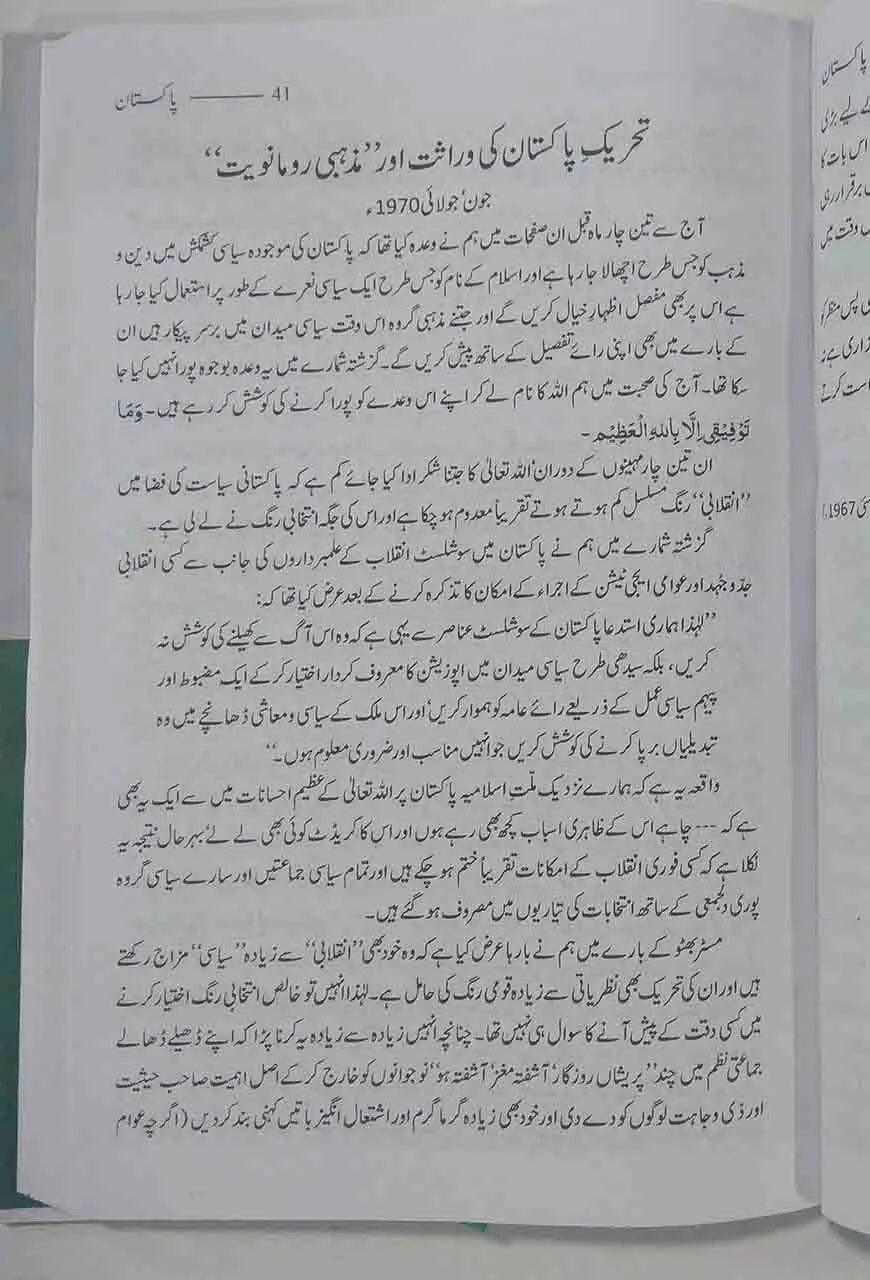 پاکستان ——— 41
تحریکِ پاکستان کی وراثت اور ”مذہبی رومانویت“
جون‘ جولائی 1970ء
آج سے تین چار ماہ قبل ان صفحات میں ہم نے وعدہ کیا تھا کہ پاکستان کی موجودہ سیاسی کشمکش میں دین و
مذہب کو جس طرح اچھالا جا رہا ہے اور اسلام کے نام کو جس طرح ایک سیاسی نعرے کے طور پر استعمال کیا جا رہا
ہے اس پر بھی مفصل اظہارِ خیال کریں گے اور جتنے مذہبی گروہ اس وقت سیاسی میدان میں برسر پیکار ہیں ان
کے بارے میں بھی اپنی رائے تفصیل کے ساتھ پیش کریں گے۔ گزشتہ شمارے میں یہ وعدہ بوجوہ پورا نہیں کیا جا
سکا تھا۔ آج کی صحبت میں ہم اللہ کا نام لے کر اپنے اس وعدے کو پورا کرنے کی کوشش کر رہے ہیں۔ وَمَا
تَوْفِیْقِیْ اِلَّا بِاللهِ الْعَظِیْمِ۔
ان تین چار مہینوں کے دوران‘ اللہ تعالیٰ کا جتنا شکر ادا کیا جائے کم ہے کہ پاکستانی سیاست کی فضا میں
”انقلابی“ رنگ مسلسل کم ہوتے ہوتے تقریباً معدوم ہو چکا ہے اور اس کی جگہ انتخابی رنگ نے لے لی ہے۔
گزشتہ شمارے میں ہم نے پاکستان میں سوشلسٹ انقلاب کے علمبرداروں کی جانب سے کسی انقلابی
جدوجہد اور عوامی ایجی ٹیشن کے اجراء کے امکان کا تذکرہ کرنے کے بعد عرض کیا تھا کہ:
”لہٰذا ہماری استدعا پاکستان کے سوشلسٹ عناصر سے یہی ہے کہ وہ اس آگ سے کھیلنے کی کوشش نہ
کریں، بلکہ سیدھی طرح سیاسی میدان میں اپوزیشن کا معروف کردار اختیار کر کے ایک مضبوط اور
پیہم سیاسی عمل کے ذریعے رائے عامہ کو ہموار کریں‘ اور اس ملک کے سیاسی و معاشی ڈھانچے میں وہ
تبدیلیاں برپا کرنے کی کوشش کریں جو انہیں مناسب اور ضروری معلوم ہوں۔“
واقعہ یہ ہے کہ ہمارے نزدیک ملّتِ اسلامیہ پاکستان پر اللہ تعالیٰ کے عظیم احسانات میں سے ایک یہ بھی
ہے کہ --- چاہے اس کے ظاہری اسباب کچھ بھی رہے ہوں اور اس کا کریڈٹ کوئی بھی لے لے‘ بہر حال نتیجہ یہ
نکلا ہے کہ کسی فوری انقلاب کے امکانات تقریباً ختم ہو چکے ہیں اور تمام سیاسی جماعتیں اور سارے سیاسی گروہ
پوری دلجمعی کے ساتھ انتخابات کی تیاریوں میں مصروف ہو گئے ہیں۔
مسٹر بھٹو کے بارے میں ہم نے بارہا عرض کیا ہے کہ وہ خود بھی ”انقلابی“ سے زیادہ ”سیاسی“ مزاج رکھتے
ہیں اور ان کی تحریک بھی نظریاتی سے زیادہ قومی رنگ کی حامل ہے۔ لہٰذا انہیں تو خالص انتخابی رنگ اختیار کرنے
میں کسی دقت کے پیش آنے کا سوال ہی نہیں تھا۔ چنانچہ انہیں زیادہ سے زیادہ یہ کرنا پڑا کہ اپنے ڈھیلے ڈھالے
جماعتی نظم میں چند ”پریشاں روزگار‘ آشفتہ مغز‘ آشفتہ ہو“ نوجوانوں کو خارج کر کے اصل اہمیت صاحب حیثیت
اور ذی وجاہت لوگوں کو دے دی اور خود بھی زیادہ گرما گرم اور اشتعال انگیز باتیں کہنی بند کر دیں (اگرچہ عوام
پاکستان
کے لیے بڑی
اس بات کا
برقرار رہی
وقت میں
پس منظر کو
مئی 1967ء)